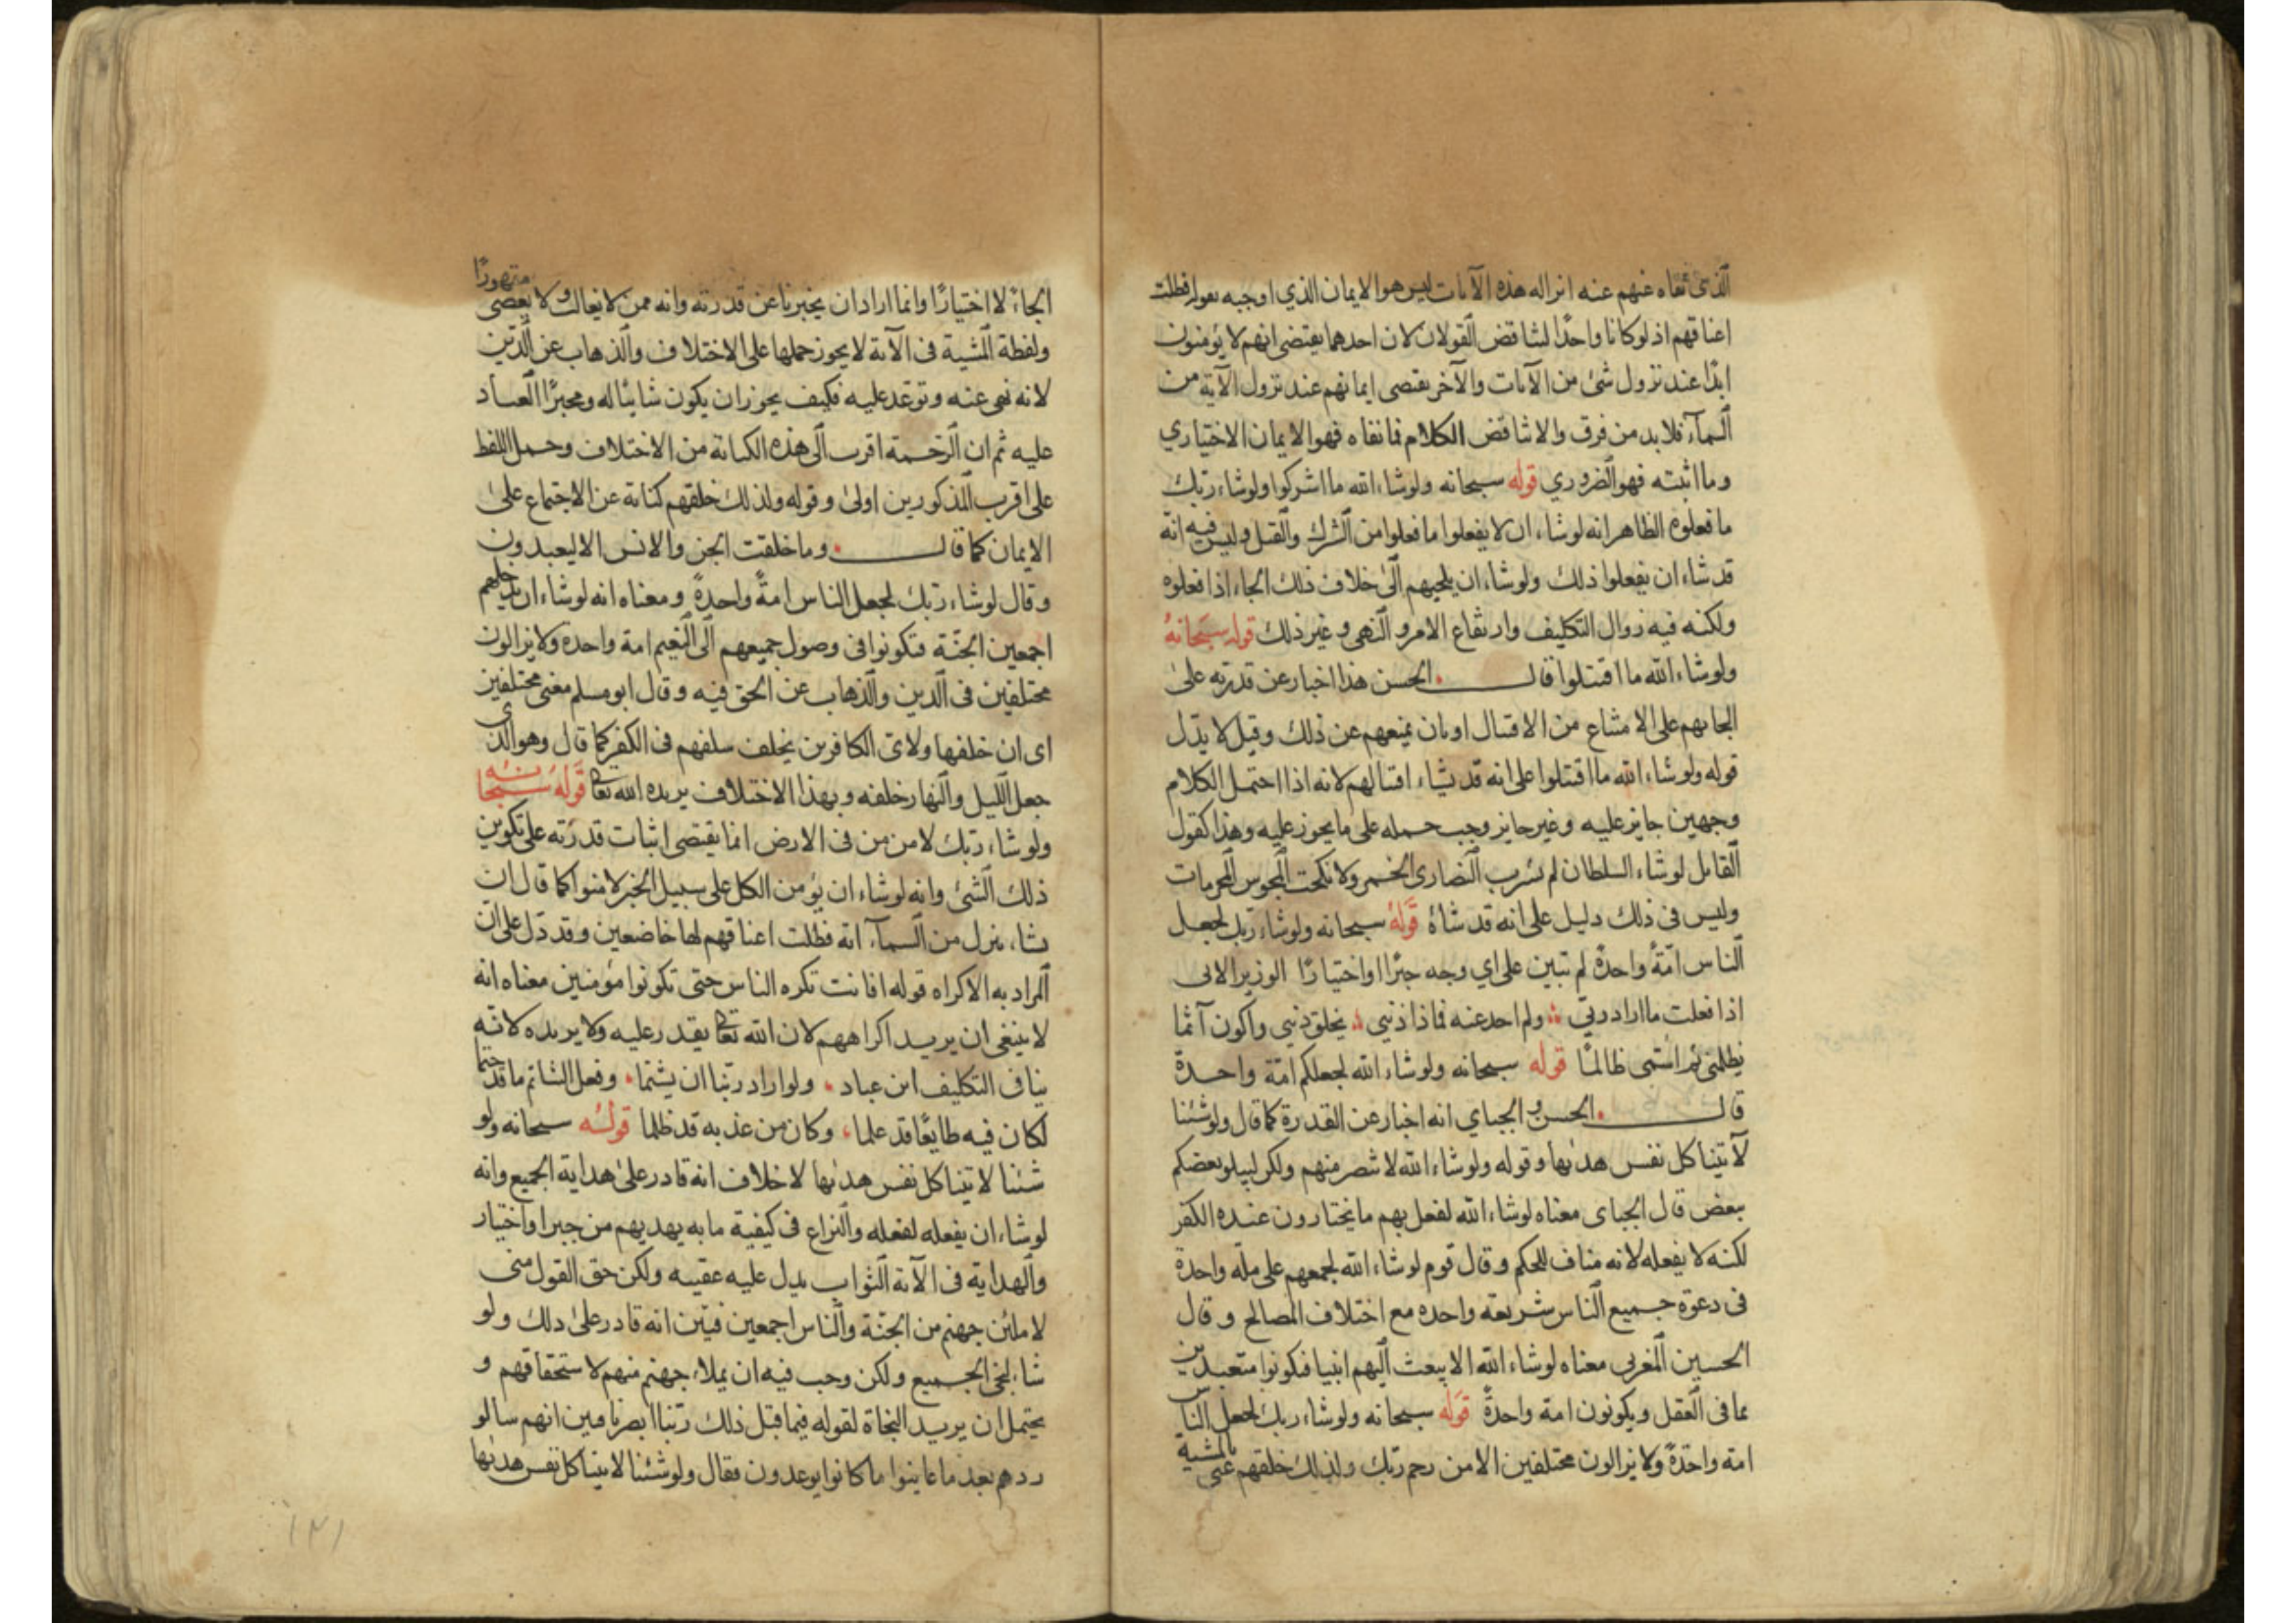 الذي نفاه عنهم عند انزاله هذه الآيات ليس هو الايمان الذي اوجبه بقوله فظلت
اعناقهم اذ لو كانا واحدًا لتناقض القولان لان احدهما يقتضى انهم لا يؤمنون
ابدًا عند نزول شئ من الآيات والآخر يقتضى ايمانهم عند نزول الآية من
السمآء فلا بد من فرق والا تناقض الكلام فما نفاه فهو الايمان الاختياري
وما اثبته فهو الضروري قوله سبحانه ولو شاء الله ما اشركوا ولو شاء ربك
ما فعلوه الظاهر انه لو شاء ان لا يفعلوا ما فعلوا من الشرك والقتل وليس فيه انه
قد شاء ان يفعلوا ذلك ولو شاء ان يلجيهم الى خلاف ذلك الجاء اذا فعلوه
ولكنه فيه زوال التكليف وارتفاع الامر والنهى وغير ذلك قوله سبحانهُ
ولو شاء الله ما اقتتلوا قال الحسن هذا اخبار عن قدرته على
الجايهم على الامتناع من الاقتتال او بان يمنعهم عن ذلك وقيل لا يدّل
قوله ولو شاء الله ما اقتتلوا على انه قد يشاء اقتتالهم لانه اذا احتمل الكلام
وجهين جايز عليه وغير جايز وجب حمله على ما يجوز عليه وهذا كقول
القايل لو شاء السلطان لم يشرب النصارى الخمر ولا نكحت المجوس المحرمات
وليس فى ذلك دليل على انه قد شاءهُ قَوله سبحانه ولو شاء ربك لجعل
الناس امّةً واحدةً لم تبين على اي وجه جبرًا او اختيارًا الوزير الابى
اذا فعلت ما اراد ربّي ولم احد عنه فماذا ذنبي يخلق ذنبي واكون آثما
يظلمنى ثم اسّمى ظالمًا قوله سبحانه ولو شاء الله لجعلكم امّة واحدة
قال الحسن و الجباي انه اخبار عن القدرة كما قال ولو شئنا
لآتينا كل نفس هديها وقوله ولو شاء الله لانتصر منهم ولكن ليبلو بعضكم
ببعض قال الجباى معناه لو شاء الله لفعل بهم ما يختارون عنده الكفر
لكنه لا يفعله لانه مناف للحكم وقال قوم لو شاء الله لجمعهم على ملّه واحدة
فى دعوة جميع الناس شريعة واحده مع اختلاف المصالح وقال
الحسين المغربى معناه لو شاء الله الا يبعث اليهم انبيا فيكونوا متعبدين
بما فى العقل ويكونون امة واحدةً قَوله سبحانه ولو شاء ربك لجعل الناس
امة واحدةً ولا يزالون مختلفين الا من رحم ربّك ولذلك خلقهم عنى بالمشية
الجاءً لا اختيارًا وانما اراد ان يخبرنا عن قدرته وانه ممن لا يغالب ولا يعصى مقهورًا
ولفظة المشية فى الآية لا يجوز حملها على الاختلاف والذهاب عن الدّين
لانه نهى عنه وتوعّد عليه فكيف يجوز ان يكون شائيًا له ومجبرًا العباد
عليه ثم ان الرحمة اقرب الى هذه الكناية من الاختلاف وحمل اللفظ
على اقرب المذكورين اولى وقوله ولذلك خلقهم كناية عن الاجتماع على
الايمان كما قال وما خلقت الجن والانس الا ليعبدون
وقال لو شاء ربّك لجعل الناس امةً واحدةً ومعناه انه لو شاء ان يدخلهم
اجمعين الجنّة فتكونوا فى وصول جميعهم الى النعيم امة واحده ولا يزالون
مختلفين فى الدين والذهاب عن الحق فيه وقال ابو مسلم معنى مختلفين
اى ان خلفها ولاى الكافرين يخلف سلفهم فى الكفر كما قال وهو الذى
جعل الليل والنهار خلفه وبهذا الاختلاف يريده الله تعا قوله سبحانه
ولو شاء ربّك لامن من فى الارض انما يقتضى اثبات قدرته على تكوين
ذلك الشئ وانه لو شاء ان يؤمن الكل على سبيل الجبر لامنوا كما قال ان
نشاء ننزل من السمآء اية فظلت اعناقهم لها خاضعين وقد دّل على انّ
المراد به الاكراه قوله افانت تكره الناس حتى تكونوا مؤمنين معناه انه
لا ينبغى ان يريد اكراههم لان الله تعا يقدر عليه ولا يريده لانه
ينافى التكليف ابن عباد ولو اراد ربّنا ان يشتما وفعل الشاتم ما قد حتما
لكان فيه طايعًا قد علما وكان من عذبه قد ظلما قولُه سبحانه ولو
شئنا لاتينا كل نفس هديها لا خلاف انه قادر على هداية الجميع وانه
لو شاء ان يفعله لفعله والنزاع فى كيفية ما به يهديهم من جبر او اختيار
والهداية فى الآية الثواب يدل عليه عقيبه ولكن حق القول منى
لاملئن جهنم من الجنّة والناس اجمعين فبيّن انه قادر على ذلك ولو
شاء لنجى الجميع ولكن وجب فيه ان يملاء جهنم منهم لاستحقاقهم و
يحتمل ان يريد النجاة لقوله فيما قبل ذلك ربّنا ابصرنا فبين انهم سالو
ردهم بعد ما عاينوا ما كانوا يوعدون فقال ولو شئنا لاتينا كل نفس هديها
١٢١